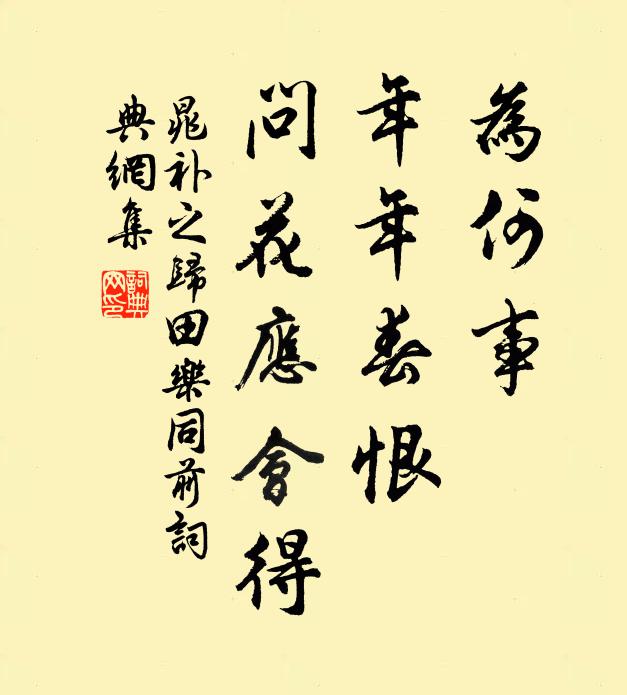 為何事
年年春恨
問花應會得
晁补之歸田樂同前詞
典網集
詞典
网印